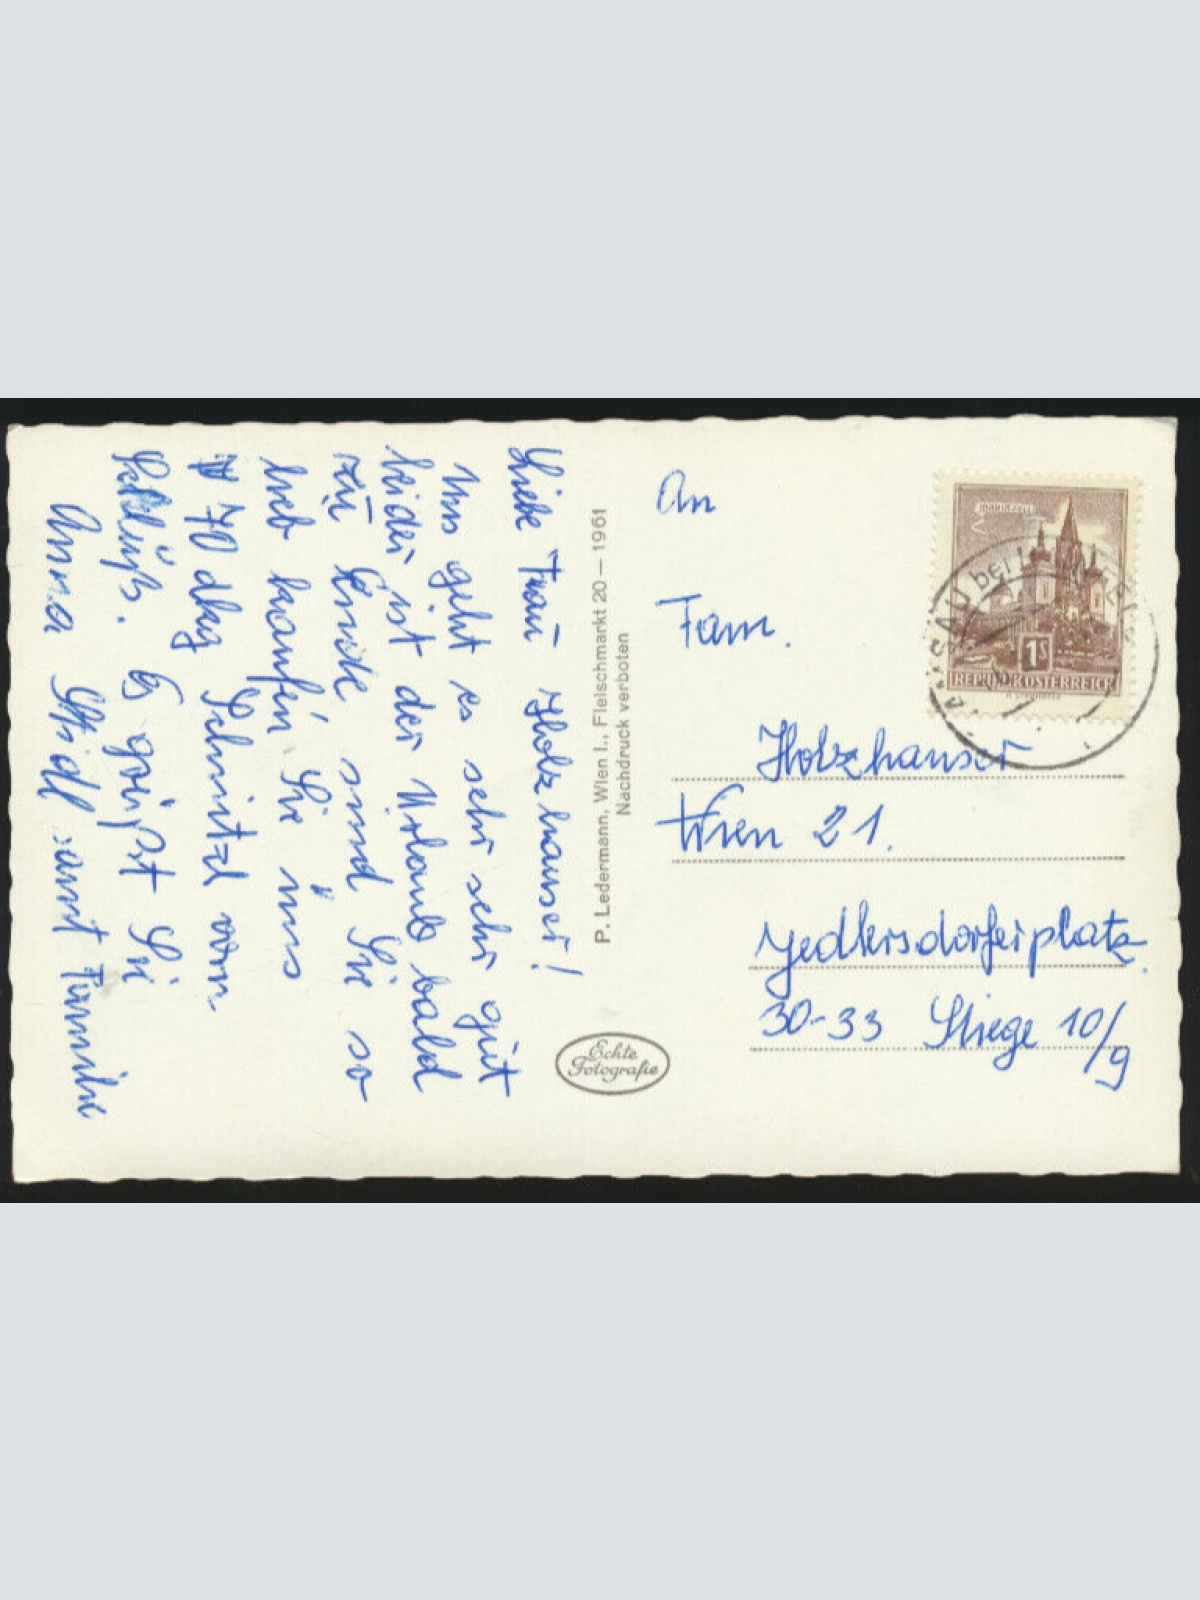 Liebe Frau Holzhauser!
Uns geht es sehr sehr gut
leider ist der Urlaub bald
zu Ende sind Sie so
lieb kaufen Sie uns
70 dkg Schnitzel vom
Schluß. Es grüßt Sie
Anna Stidl samt Familie
P. Ledermann, Wien I., Fleischmarkt 20 — 1961
Nachdruck verboten
Echte
Fotografie
An
Fam.
Holzhauser
Wien 21.
Jedlersdorferplatz
30-33 Stiege 10/9
MARIAZELL
1S
REPUBLIK ÖSTERREICH
bei